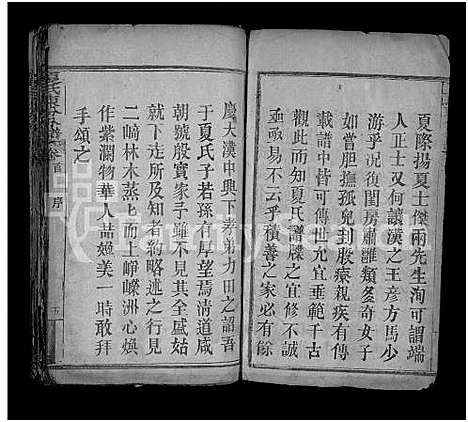 夏際揚夏士傑兩先生洵可謂端
人正士又何讓漢之王彥方馬少
游乎況復閨房肅雝類多奇女子
如嘗胆撫孤兒封股療親疾有傳
載譜中皆可傳世允宜垂範千古
觀此而知夏氏譜牒之修不誠
亟亟易不云乎積善之家必有餘
慶大漢中興下孝弟力田之詔吾
于夏氏子若孫有厚望焉清道咸
朝號殷實家予雖不見其全咸姑
就下迄所及知者約略述之
二崎林木蒸上而上崢嶸洲心煥
作紫瀾物華人喆姬美一時敢拜
手頌之
卷首 序
五